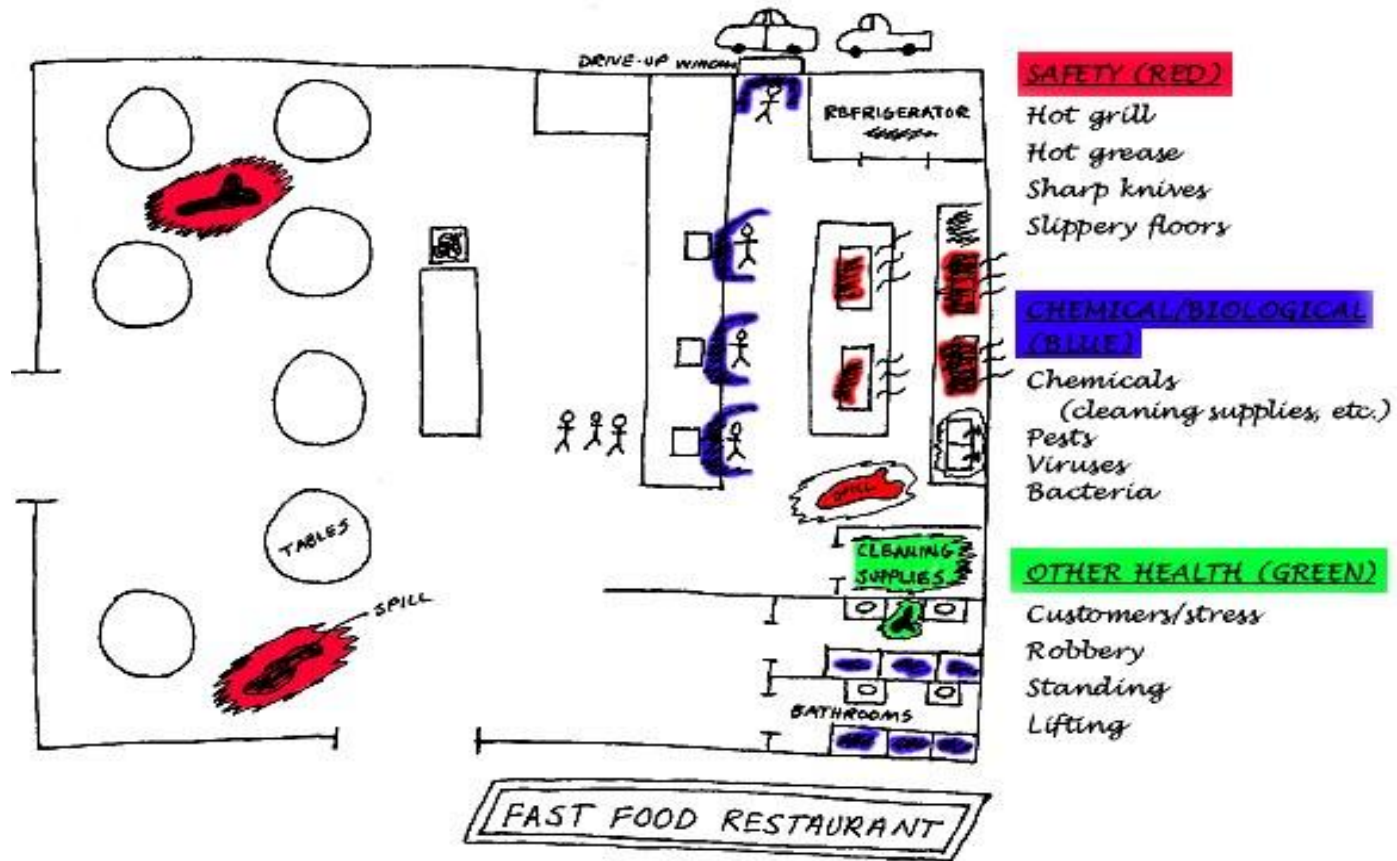 DRIVE-UP WINDOW
REFRIGERATOR
SPILL
CLEANING
SUPPLIES
TABLES
SPILL
BATHROOMS
FAST FOOD RESTAURANT
SAFETY (RED)
Hot grill
Hot grease
Sharp knives
Slippery floors
CHEMICAL/BIOLOGICAL
(BLUE)
Chemicals
(cleaning supplies, etc.)
Pests
Viruses
Bacteria
OTHER HEALTH (GREEN)
Customers/stress
Robbery
Standing
Lifting